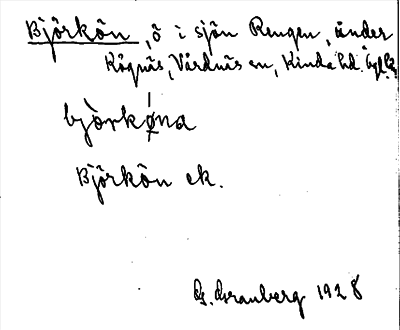 Björkön, ö i sjön Rengen, under
Krågnäs, Vårdnäs sn, Kinda hd. Ögl.
bjö̀rkøna
Björkön ek.
G. Granberg 1928